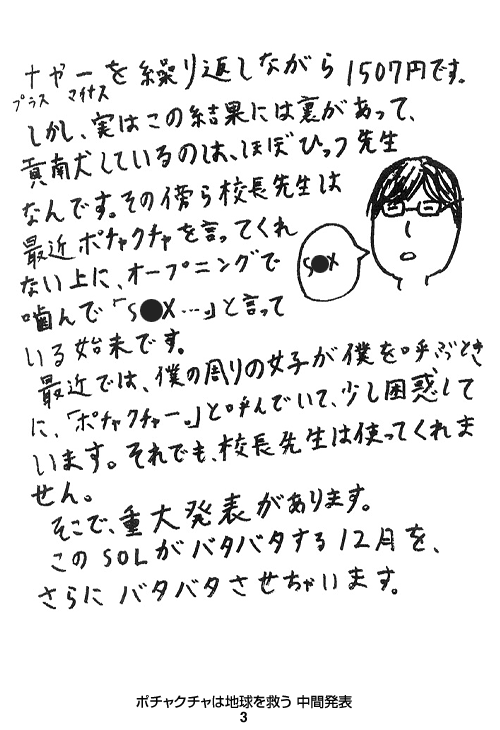 ナヤーを繰り返しながら1507円です。
プラス マイナス
しかし、実はこの結果には裏があって、
貢献しているのは、ほぼひっつ先生
なんです。その傍ら校長先生は
最近ポチャクチャを言ってくれ
ない上に、オープニングで
噛んで「S●X…。」と言って
いる始末です。
S●X
最近では、僕の周りの女子が僕を呼ぶとき
に、「ポチャクチャー。」と呼んでいて、少し困惑して
います。それでも、校長先生は使ってくれま
せん。
そこで、重大発表があります。
このSOLがバタバタする12月を、
さらにバタバタさせちゃいます。
ポチャクチャは地球を救う 中間発表
3